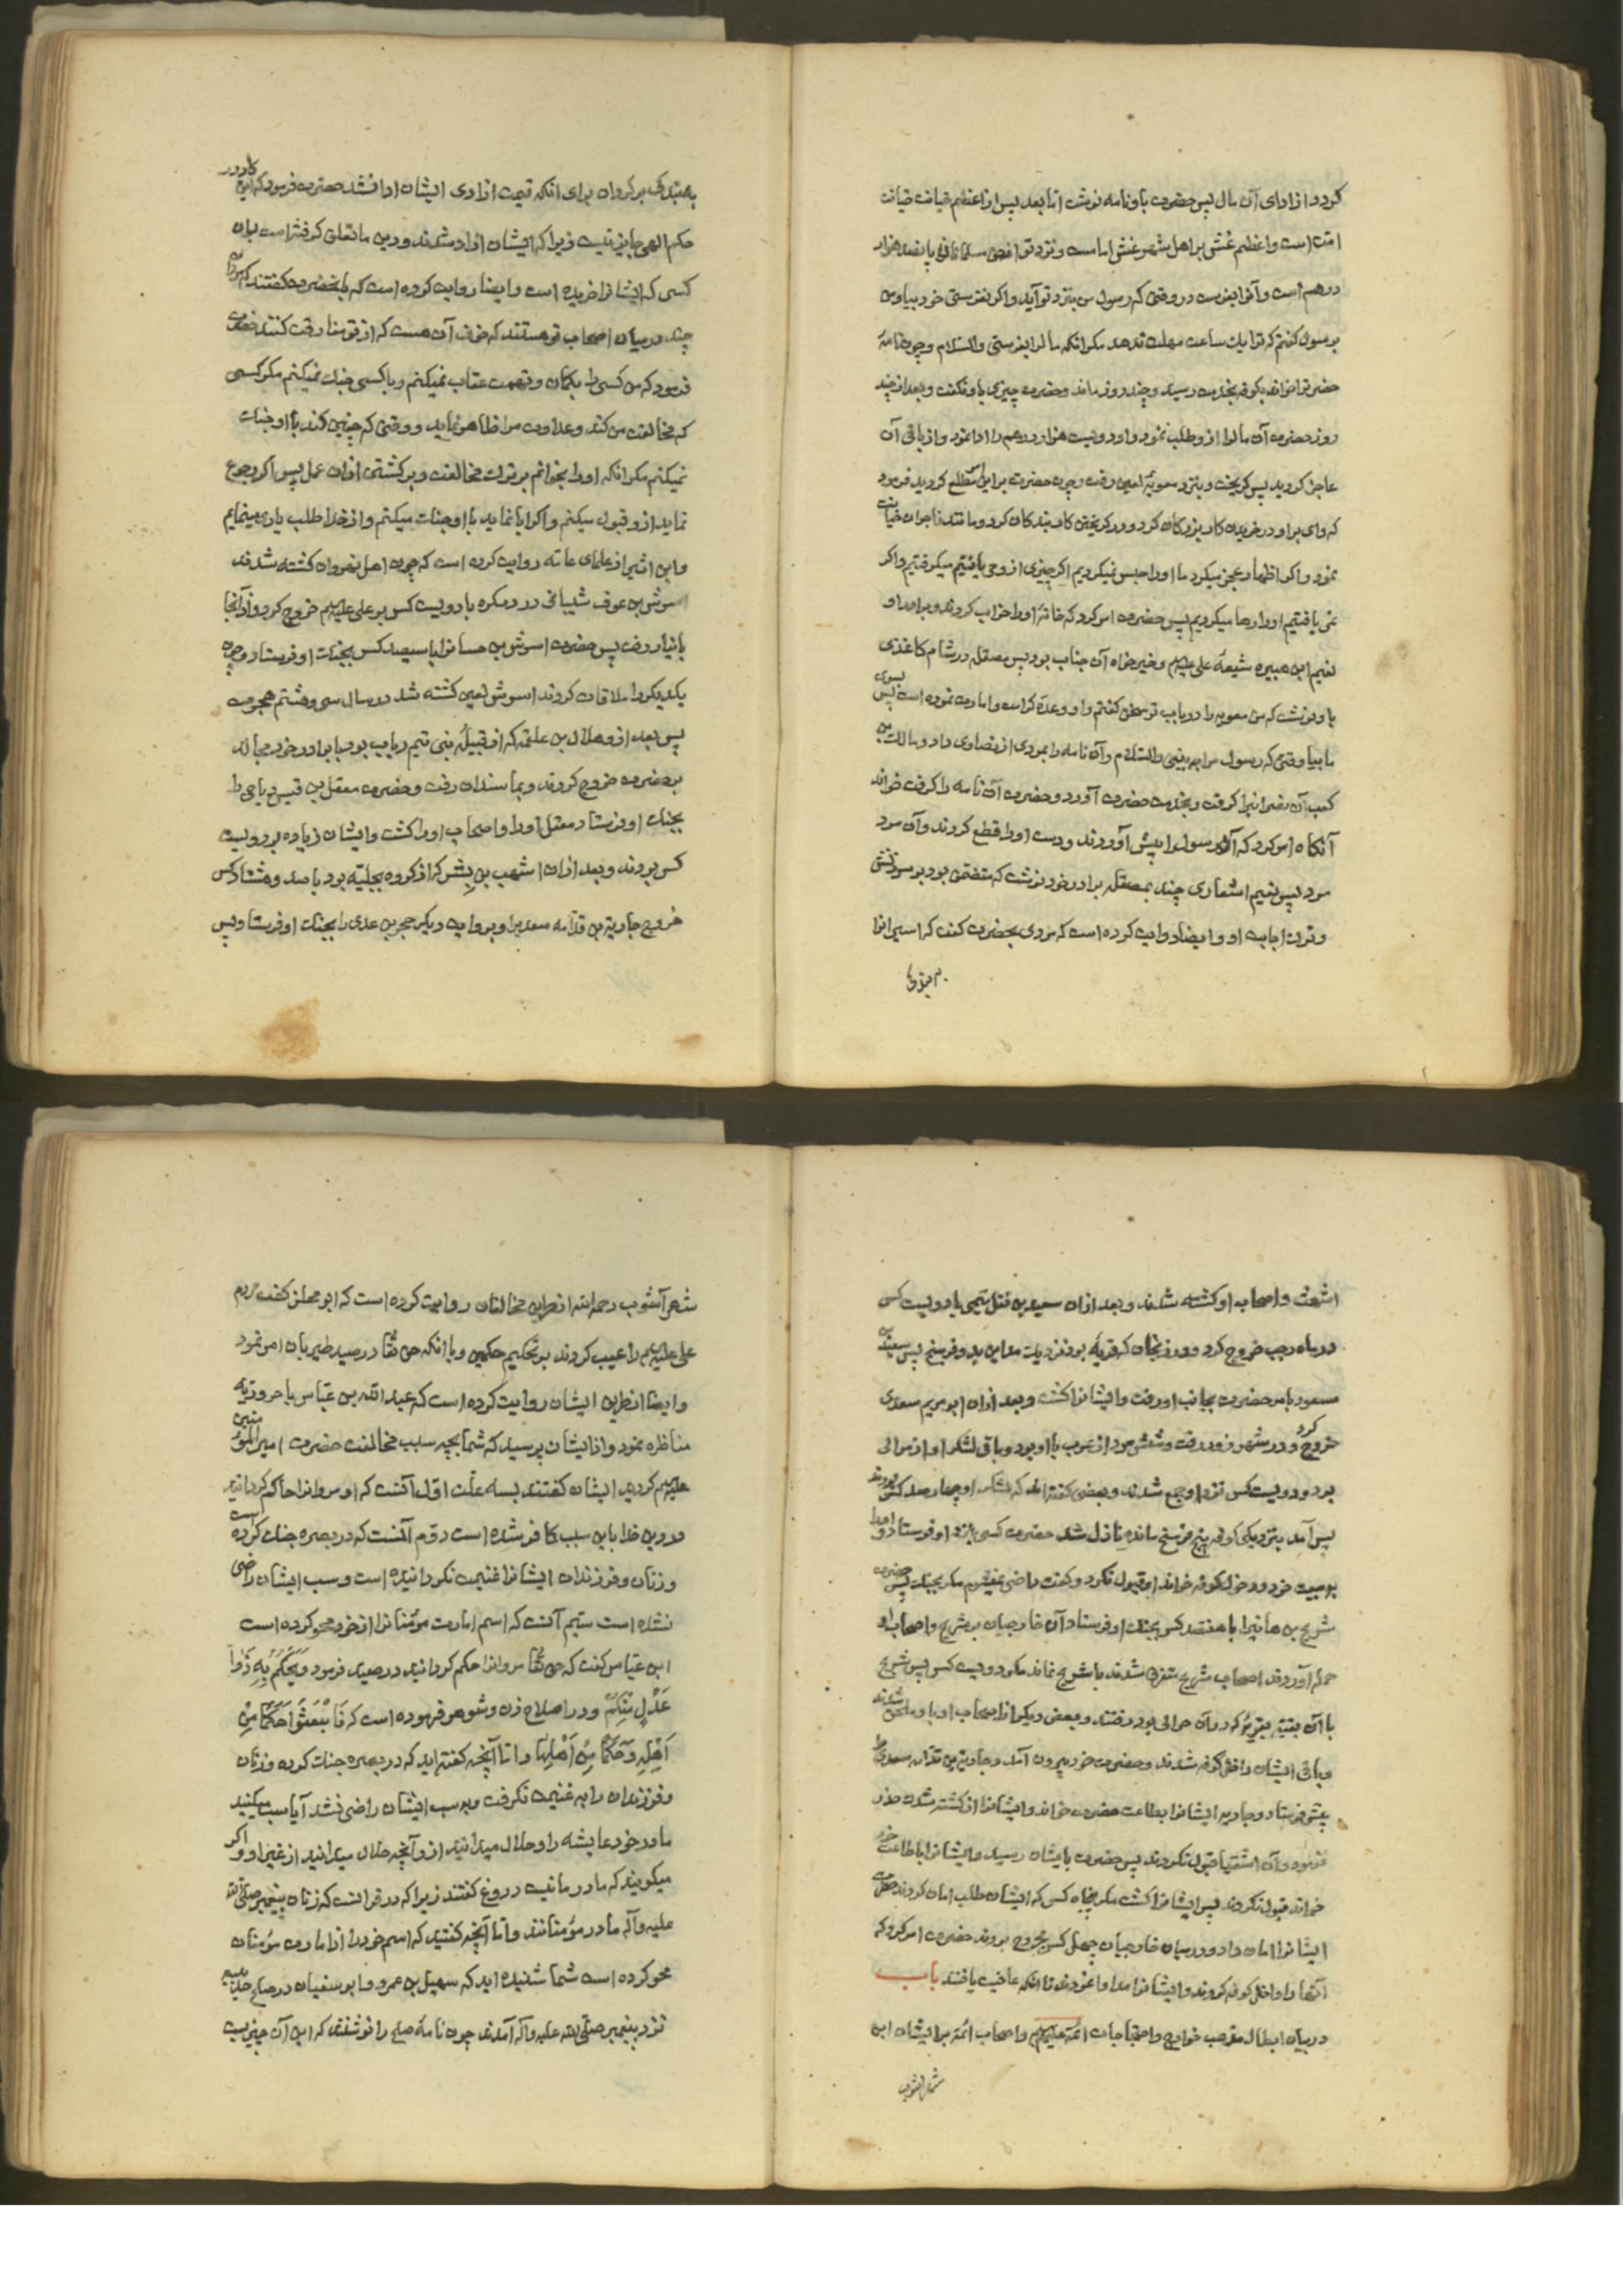 کردد از ادای آن مال پس حضرت باو نامه نوشت اما بعد پس از اعظم خیانت خیانت
امت است و اعظم غش بر اهل شهر غش امامست و نزد تو از حق مسلمانان پانصد هزار
درهم است و آنرا بفرست در وقتی که رسول من بنزد تو آید و اکر نفرستی خود بیا و من
برسول کفتم که ترا یك ساعت مهلت ندهد مکر انکه مالرا بفرستی والسلام و چون نامهٔ
حضرترا خواند بکوفه بخدمت رسید و چند روز ماند و حضرت چیزی باو نکفت و بعد از چند
روز حضرت آن مالرا ازو طلب نمود و او دویست هزار درهم را ادا نمود و از باقی آن
عاجز کردید پس کریخت و بنزد معویهٔ لعین رفت و چون حضرت بر این امر مطلع کردید فرمود
که وای بر او در خریدن کار بزرکان کرد و در کریختن کار بندکان کرد و مانند فاجران خیانت
نمود و اکر اظهار عجز میکرد ما او را حبس نمیکردیم اکر چیزی ازو می یافتیم میکرفتیم و اکر
نمی یافتیم او را رها میکردیم پس حضرت امر کرد که خانهٔ او را خراب کردند و برادر او
نعیم ابن هبیره شیعهٔ علی علیه السلم و خیر خواه آن جناب بود پس مصقله در شام کاغذی
باو نوشت که من معویه را در باب تو سخن کفتم و او وعدهٔ کرامت و امارت نموده است پس بسوی
ما بیا وقتی که رسول مرا ببینی والسلام و آن نامه را بمردی از نصاری داد و مالك بن
کعب آن نصرانیرا کرفت و بخدمت حضرت آورد و حضرت آن نامه را کرفت خواند
آنکاه امر کرد که آن رسولرا پیش آوردند و دست او را قطع کردند و آن مرد
مرد پس نعیم اشعاری چند بمصقله برادر خود نوشت که متضمن بود بر سرزنش
و ترك اجابت او و ایضا روایت کرده است که مردی بحضرت کفت که اسیرانرا
به بندکی بر کردان برای انکه قیمت ازادی ایشان ادا نشد حضرت فرمود که این کار در
حکم الهی جایز نیست زیرا که ایشان ازاد شدند و دین ما تعلق کرفته است بان
کسی که ایشانرا خریده است و ایضا روایت کرده است که بحضرت کفتند که مردم
چند در میان اصحاب تو هستند که خوف آن هست که از تو مفارقت کنند حضرت
فرمود که من کسی را بکمان و تهمت عقاب نمیکنم و با کسی جنك نمیکنم مکر کسی
که مخالفت من کند و عداوت من را ظاهر نماید و وقتی که چنین کند با او جنك
نمیکنم مکر انکه او را بخوانم بر ترك مخالفت و برکشتن ازان عمل پس اکر رجوع
نماید ازو قبول میکنم و اکر ابا نماید با او جنك میکنم و از خدا طلب یاری مینمایم
و ابن اثیر از علمای عامه روایت کرده است که چون اهل نهروان کشته شدند
اسرش بن عوف شیبانی در دسکره با دویست کس بر علی علیه السلم خروج کرد و از آنجا
بانبار رفت پس حضرت اسرش بن حسانرا با سیصد کس بجنك او فرستاد و چون
یکدیکر را ملاقات کردند اسرش لعین کشته شد در سال سی و هشتم هجرت
پس بعد ازو هلال بن علقمه که از قبیلهٔ بنی تیم رباب بود با برادر خود مجالد
بر حضرت خروج کردند و بماسندان رفت و حضرت معقل بن قیس ریاحی را
بجنك او فرستاد معقل او را و اصحاب او را کشت و ایشان زیاده بر دویست
کس بودند و بعد ازان اشهب بن بشر که از کروه بجلیه بود با صد و هشتاد کس
خروج جاریة بن قدامه سعد برا و بروایت دیکر حجر بن عدی را بجنك او فرستاد پس
اشعث و اصحاب او کشته شدند و بعد ازان سعید بن قفل تیمی با دویست کس
در ماه رجب خروج کرد و در زنجان که قریهٔ بود نزدیك مداین بدو فرسخ پس سعد بن
مسعود بامر حضرت بجانب او رفت و ایشانرا کشت و بعد ازان ابو مریم سعدی
خروج کرد و در شهر زور رفت و شش مرد از عرب با او بود و باقی لشکر او از موالی
بود و دویست کس نزد او جمع شدند و بعضی کفته اند که لشکر او چهار صد کس بودند
پس آمد بنزدیکی کوفه پنج فرسخ مانده نازل شد حضرت کسی را نزد او فرستاد و او را
به بیعت خود و دخول کوفه خواند او قبول نکرد و کفت راضی نمیشوم مکر بجنك پس حضرت
شریح بن هانیرا با هفتصد کس بجنك او فرستاد آن خارجیان بر شریح و اصحاب او
حمله آوردند اصحاب شریح متفرق شدند با شریح نماند مکر دویست کس پس شریح
با آن بقیه بقریهٔ که در آن حوالی بود رفتند و بعض دیکر از اصحاب او باو ملحق شدند
و باقی ایشان داخل کوفه شدند و حضرت خود بیرون آمد و جاریة بن قدامه سعدی را
پیش فرستاد و جاریه ایشانرا بطاعت حضرت خواند و ایشانرا از کشته شدن حذر
فرمود و آن اشقیا قبول نکردند پس حضرت بایشان رسید و ایشانرا باطاعت خود
خواند قبول نکردند پس ایشانرا کشت مکر پنجاه کس که ایشان طلب امان کردند حضرت
ایشانرا امان داد و در میان خارجیان چهل کس مجروح بودند حضرت امر کرد که
آنها را داخل کوفه کردند و ایشانرا مداوا نمودند تا انکه عافیت یافتند باب
در بیان ابطال مذهب خوارج و احتجاجات ائمه علیهم السلم و اصحاب ائمه بر ایشان ابن
شهر آشوب
شهر آشوب رحمه الله از طریق مخالفان روایت کرده است که ابو مجلز کفت مردم
علی علیه السلم را عیب کردند بر تحکیم حکمین و با انکه حق تعا در صید طیر بان امر نمود
و ایضا از طریق ایشان روایت کرده است که عبد الله بن عباس با حروریه
مناظره نمود و از ایشان پرسید که شما بچه سبب مخالفت حضرت امیر المؤمنین
علیه السلم کردید ایشان کفتند بسه علت اول آنست که او مردانرا حاکم کردانید
در دین خدا باین سبب کافر شده است دوم آنست که در بصره جنك کرده است
و زنان و فرزندان ایشانرا غنیمت نکردانیده است و سب ایشان راضی
نشده است سیم آنست که اسم امارت مؤمنانرا از خود محو کرده است
ابن عباس کفت که حق تعا مردانرا حکم کردانید در صید فرمود وَیَحْکُمُ بِهِ ذَوَا
عَدْلٍ مِنْکُمْ و در اصلاح زن و شوهر فرموده است که فَابْعَثُوا حَکَمًا مِنْ
اَهْلِهِ وَحَکَمًا مِنْ اَهْلِهَا و اما آنچه کفته اید که در بصره جنك کرده و زنان
و فرزندان را به غنیمت نکرفت و به سب ایشان راضی نشد آیا سب میکنید
مادر خود عایشه را و حلال میدانید ازو آنچه حلال میدانید از غیر او و اکر
میکویند که مادر ما نیست دروغ کفتند زیرا که در قرانست که زنان پیغمبر صلی الله
علیه و آله مادر مؤمنانند و اما آنچه کفتید که اسم خود را از امارت مؤمنان
محو کرده است شما شنیده اید که سهیل بن عمرو و ابو سفیان در صلح حدیبیه
نزد پیغمبر صلی الله علیه و آله آمدند چون نامهٔ صلح را نوشتند که این آن چیزیست